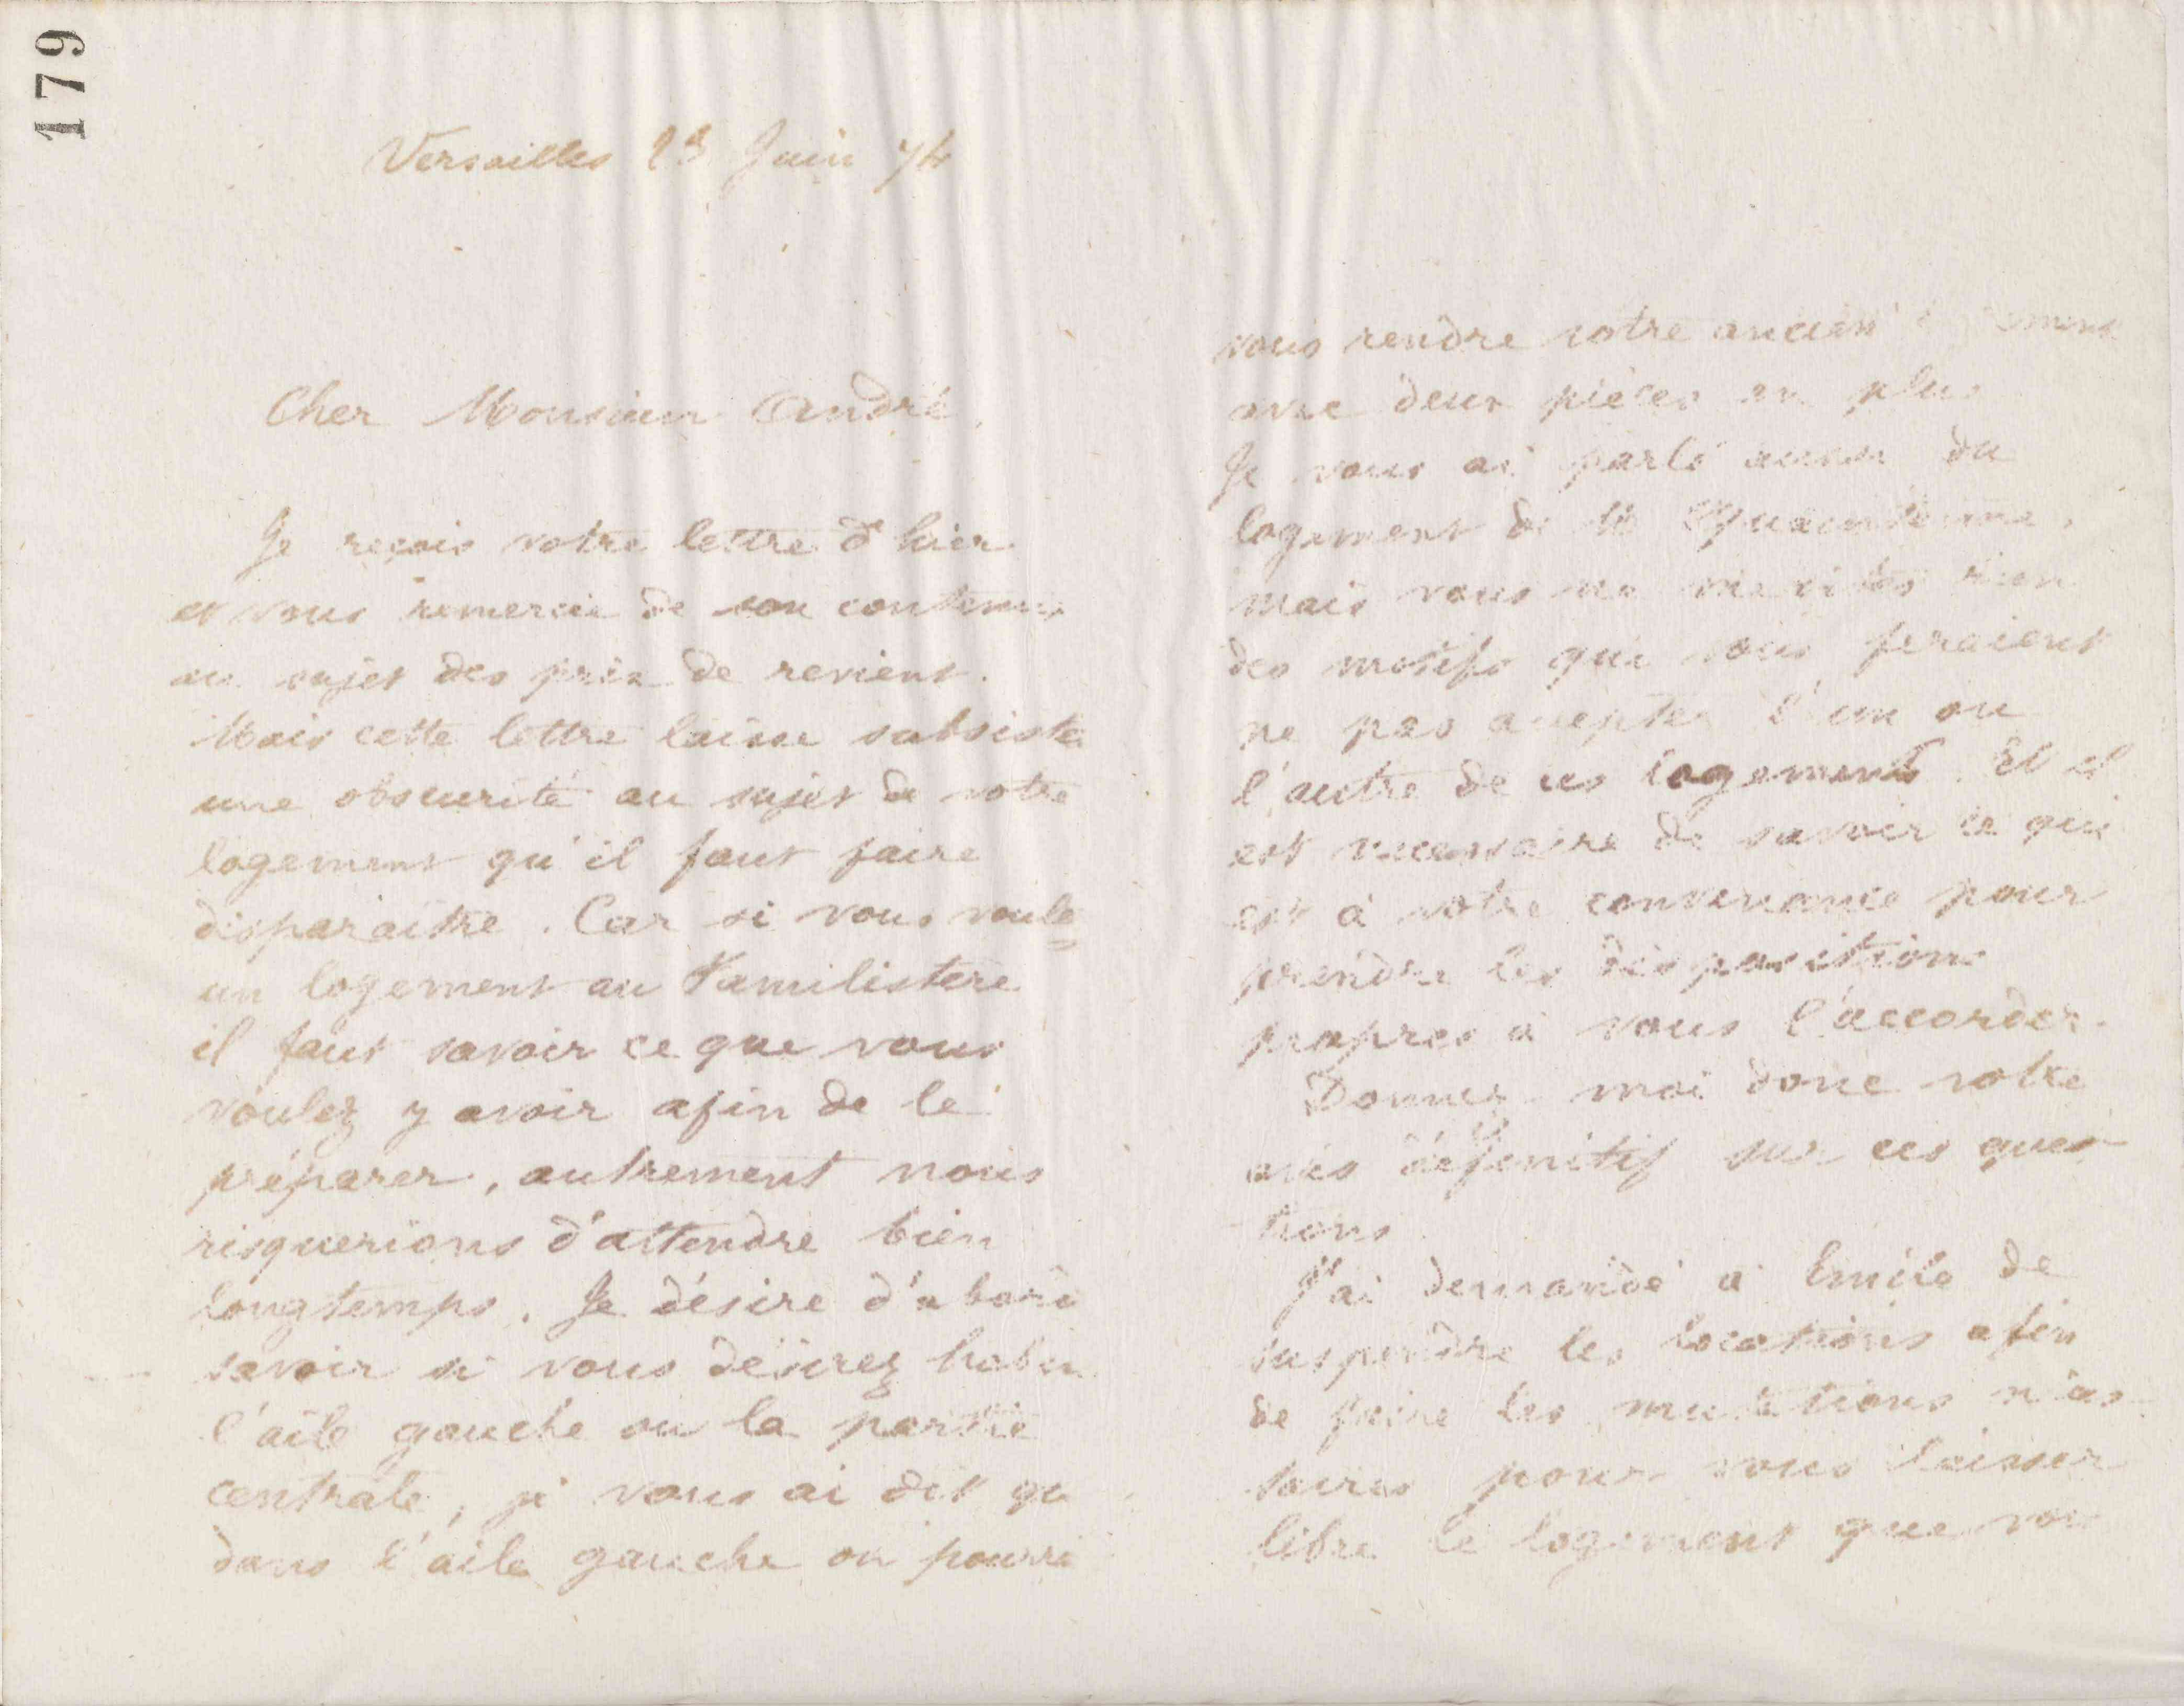 179
Versailles 23 Juin 74
Cher Monsieur André,
Je reçois votre lettre d'hier
et vous remercie de son contenu
au sujet des prix de revient.
Mais cette lettre laisse subsister
une obscurité au sujet de votre
logement qu'il faut faire
disparaître. Car si vous voulez
un logement au Familistère
il faut savoir ce que vous
voulez y avoir afin de le
préparer, autrement nous
risquerions d'attendre bien
longtemps. Je désire d'abord
savoir si vous désirez habiter
l'aile gauche ou la partie
centrale, je vous ai dit que
dans l'aile gauche on pourrait
vous rendre votre ancien
avec deux pièces en plus
Je vous ai parlé aussi du
logement de
mais vous ne me dites rien
des motifs qui vous feraient
ne pas accepter l'un ou
l'autre de ces logements. Et il
est nécessaire de savoir ce qui
est à votre convenance pour
prendre les dispositions
propres à vous l'accorder.
Donnez-moi donc votre
avis définitif sur ces ques
tions
J'ai demandé à Emile de
suspendre les locations afin
de faire les mutations néces-
saires pour vous laisser
libre le logement que vous